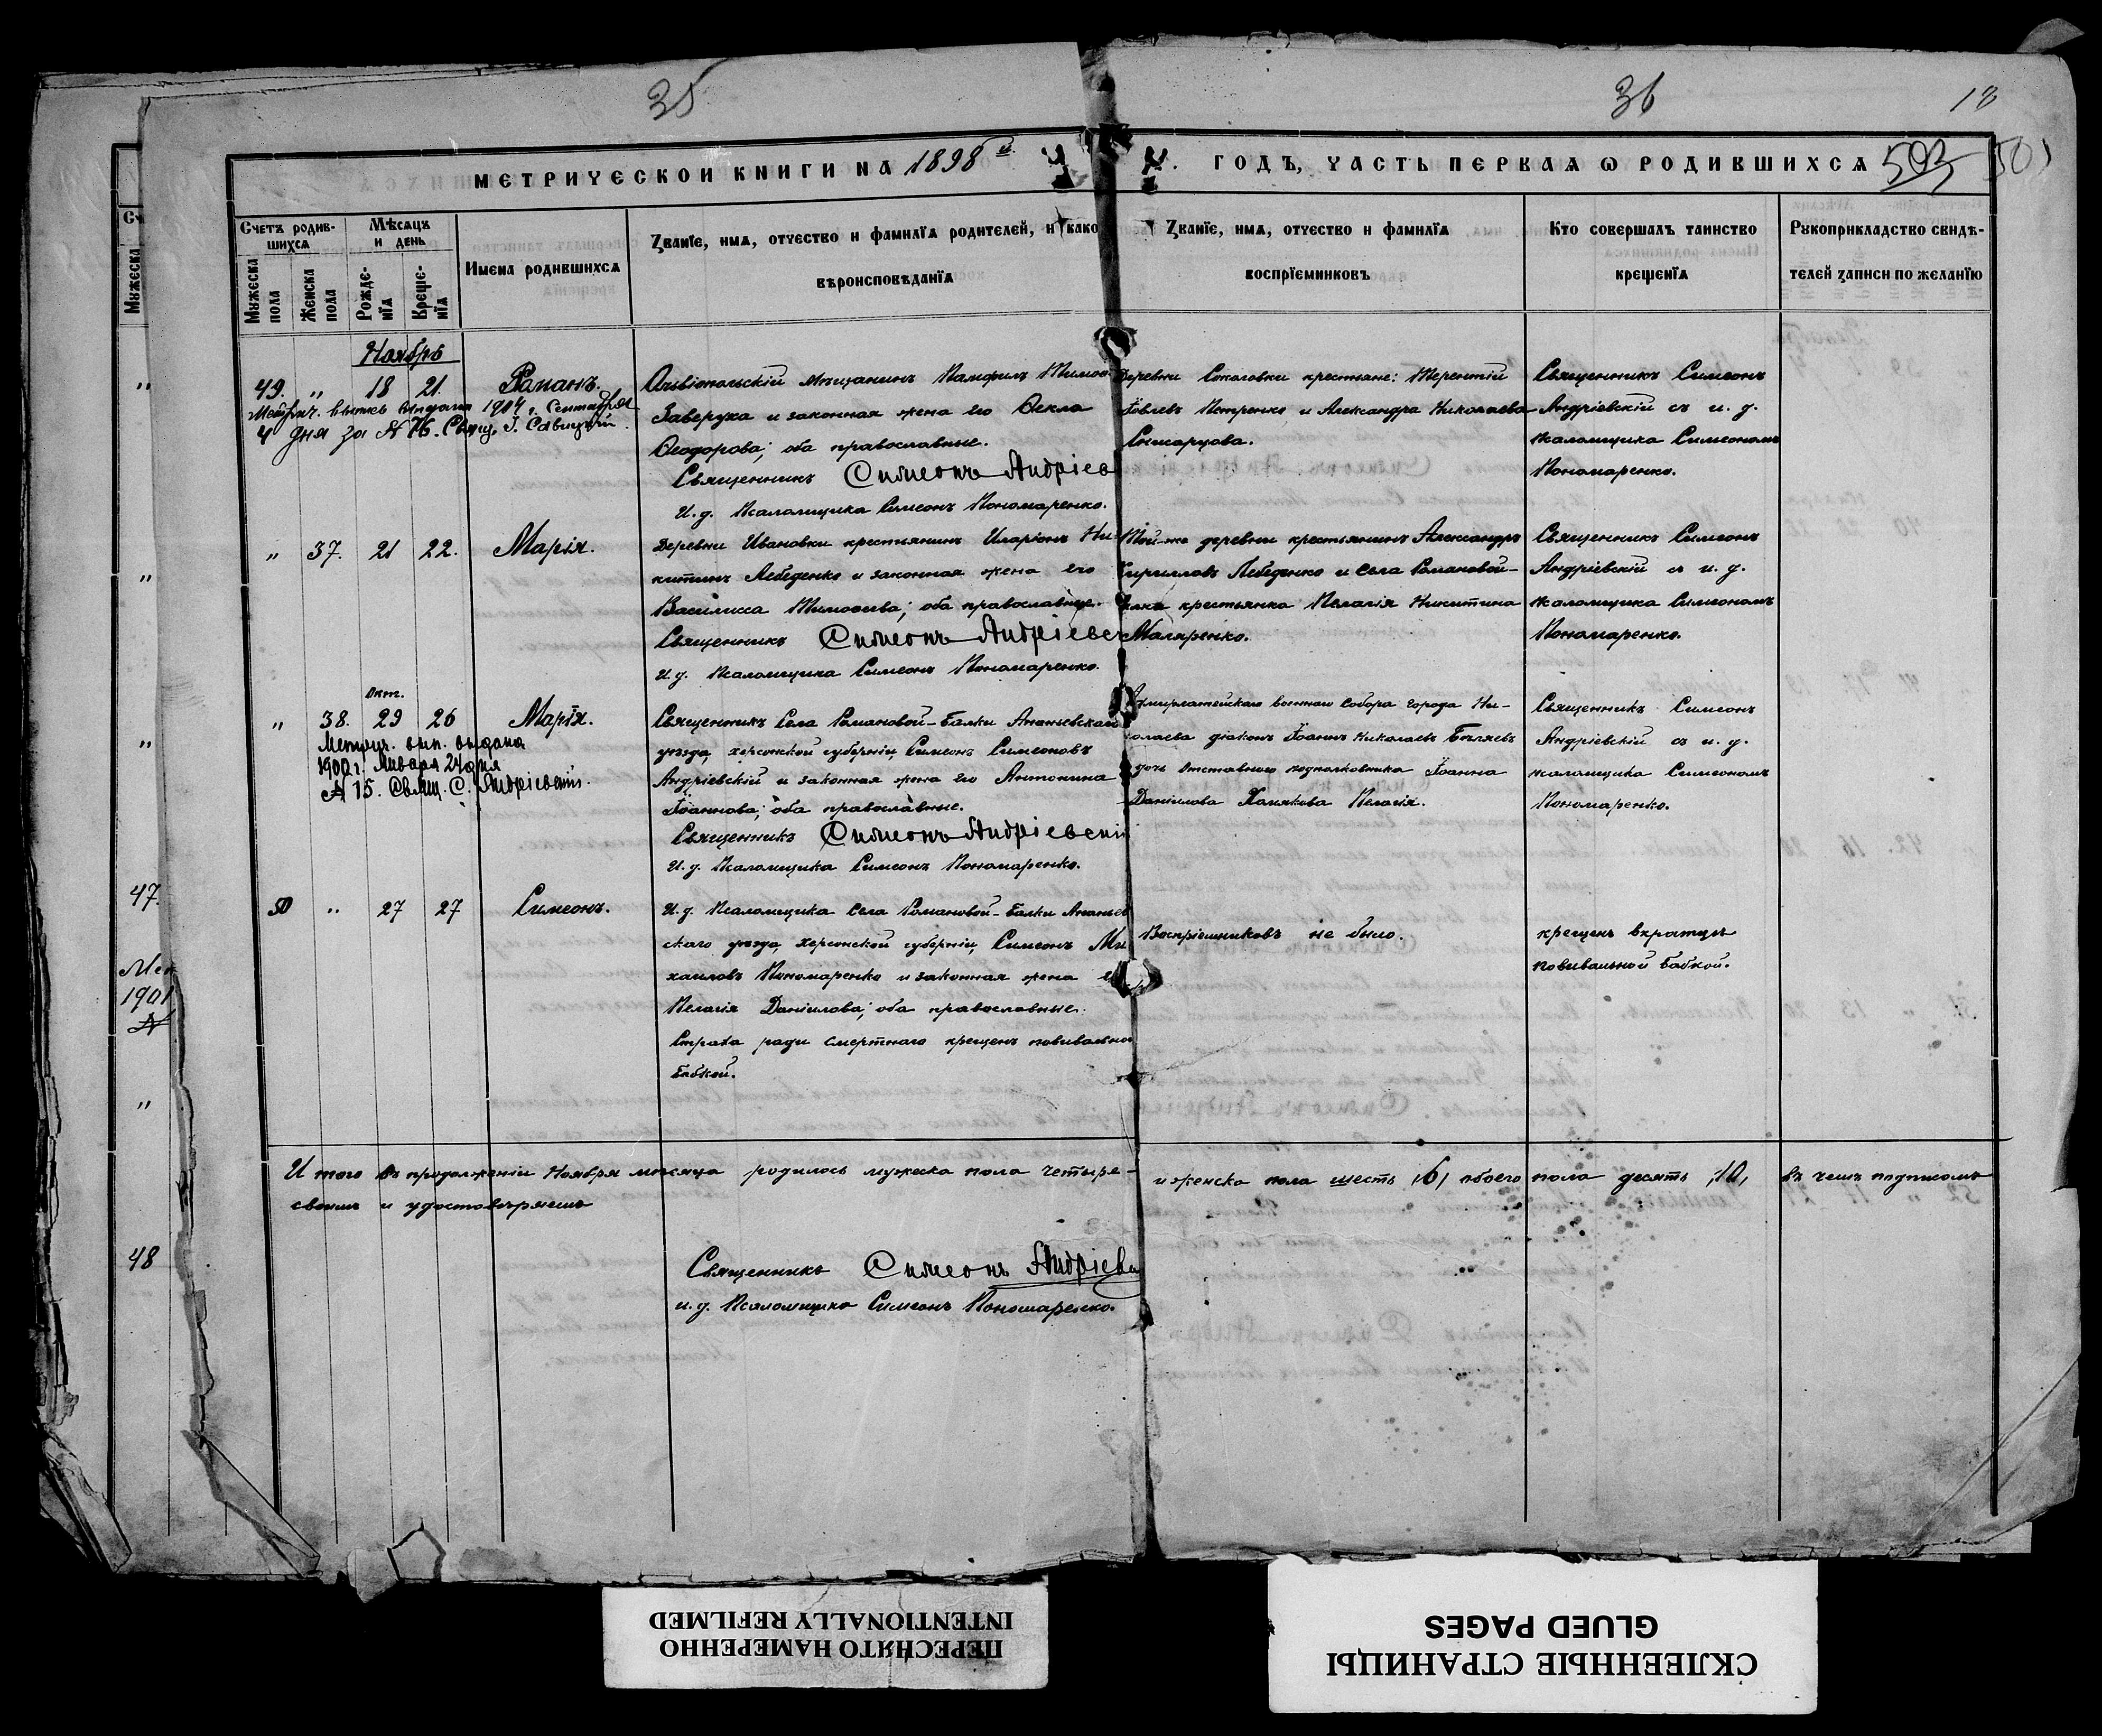 35
36
18
МЕТРИЧЕСКОЙ КНИГИ НА 1898й
ГОДЪ, ЧАСТЬ ПЕРВАЯ Ѡ РОДИВШИХСЯ
503
501
Счетъ родив-
шихся
Мужеска пола
Женска пола
Мѣсяцъ и день
Рожде-
нїя
Креще-
нїя
Имена родившихся
Званїе, имя, отчество и фамилїя родителей, и како
вѣроисповѣданїя
Званїе, имя, отчество и фамилїя
воспрїемниковъ
Кто совершалъ таинство
крещенїя
Рукоприкладство свидѣ-
телей записи по желанїю
Ноябрь
49. „ 18 21. Романъ.
Метрич. выпись выдана 1904 г. Сентября
4 дня за № 76. Свящ. І. Савицкій.
Ольвіопольскій мѣщанинъ Памфилъ Тимоѳ.
Заверуха и законная жена его Ѳекла
Ѳеодорова; оба православные.
Священникъ Симеонъ Андріев
И. д. Псаломщика Симеонъ Пономаренко.
Деревни Соколовки крестьяне: Терентій
Іовлевъ Петренко и Александра Николаева
Снигарцова.
Священникъ Симеонъ
Андріевскій съ и. д.
псаломщика Симеономъ
Пономаренко.
„ 37. 21 22. Марія.
Деревни Ивановки крестьянинъ Иларіонъ Ни-
китинъ Лебеденко и законная жена его
Василисса Тимоѳеева; оба православные.
Священникъ Симеонъ Андріевс
И. д. Псаломщика Симеонъ Пономаренко.
Той-же деревни крестьянинъ Александръ
Кирилловъ Лебеденко и села Романовой-
Балки крестьянка Пелагія Никитина
Маляренко.
Священникъ Симеонъ
Андріевскій съ и. д.
псаломщика Симеономъ
Пономаренко.
Окт.
„ 38. 29 26 Марія.
Метрич. вып. выдана
1900 г. Января 24 дня
№ 15. Свящ. С. Андріевскій.
Священникъ Села Романовой-Балки Ананьевскаго
уѣзда, херсонской губерніи, Симеонъ Симеоновъ
Андріевскій и законная жена его Антонина
Іоаннова; оба православные.
Священникъ Симеонъ Андріевскій
И. д. Псаломщика Симеонъ Пономаренко.
Адмиралтейскаго военнаго Собора города Ни-
колаева діаконъ Іоаннъ Николаевъ Бѣляевъ
дочь отставного подполковника Іоанна
Даніилова Пелагія.
Священникъ Симеонъ
Андріевскій съ и. д.
псаломщика Симеономъ
Пономаренко.
50 „ 27 27 Симеонъ.
И. д. Псаломщика Села Романовой-Балки Ананьев
скаго уѣзда херсонской губерніи, Симеонъ Ми
хаиловъ Пономаренко и законная жена е
Пелагія Даніилова; оба православные.
Страха ради смертнаго крещенъ повивально
бабкой.
Воспріемниковъ не было.
крещенъ вкратцѣ
повивальной бабкой.
И того въ продолженіи Ноября мѣсяца родилось мужеска пола четыре-
женска пола шесть /6/ обоего пола десять /10/ въ чемъ подписомъ
своимъ и удостовѣряемъ
Священникъ Симеонъ Андріевс
и. д. Псаломщика Симеонъ Пономаренко.
Мужеска
47
Мет
1901
№
48
ПЕРЕСНЯТО НАМЕРЕННО
INTENTIONALLY REFILMED
СКЛЕЕННЫЕ СТРАНИЦЫ
GLUED PAGES